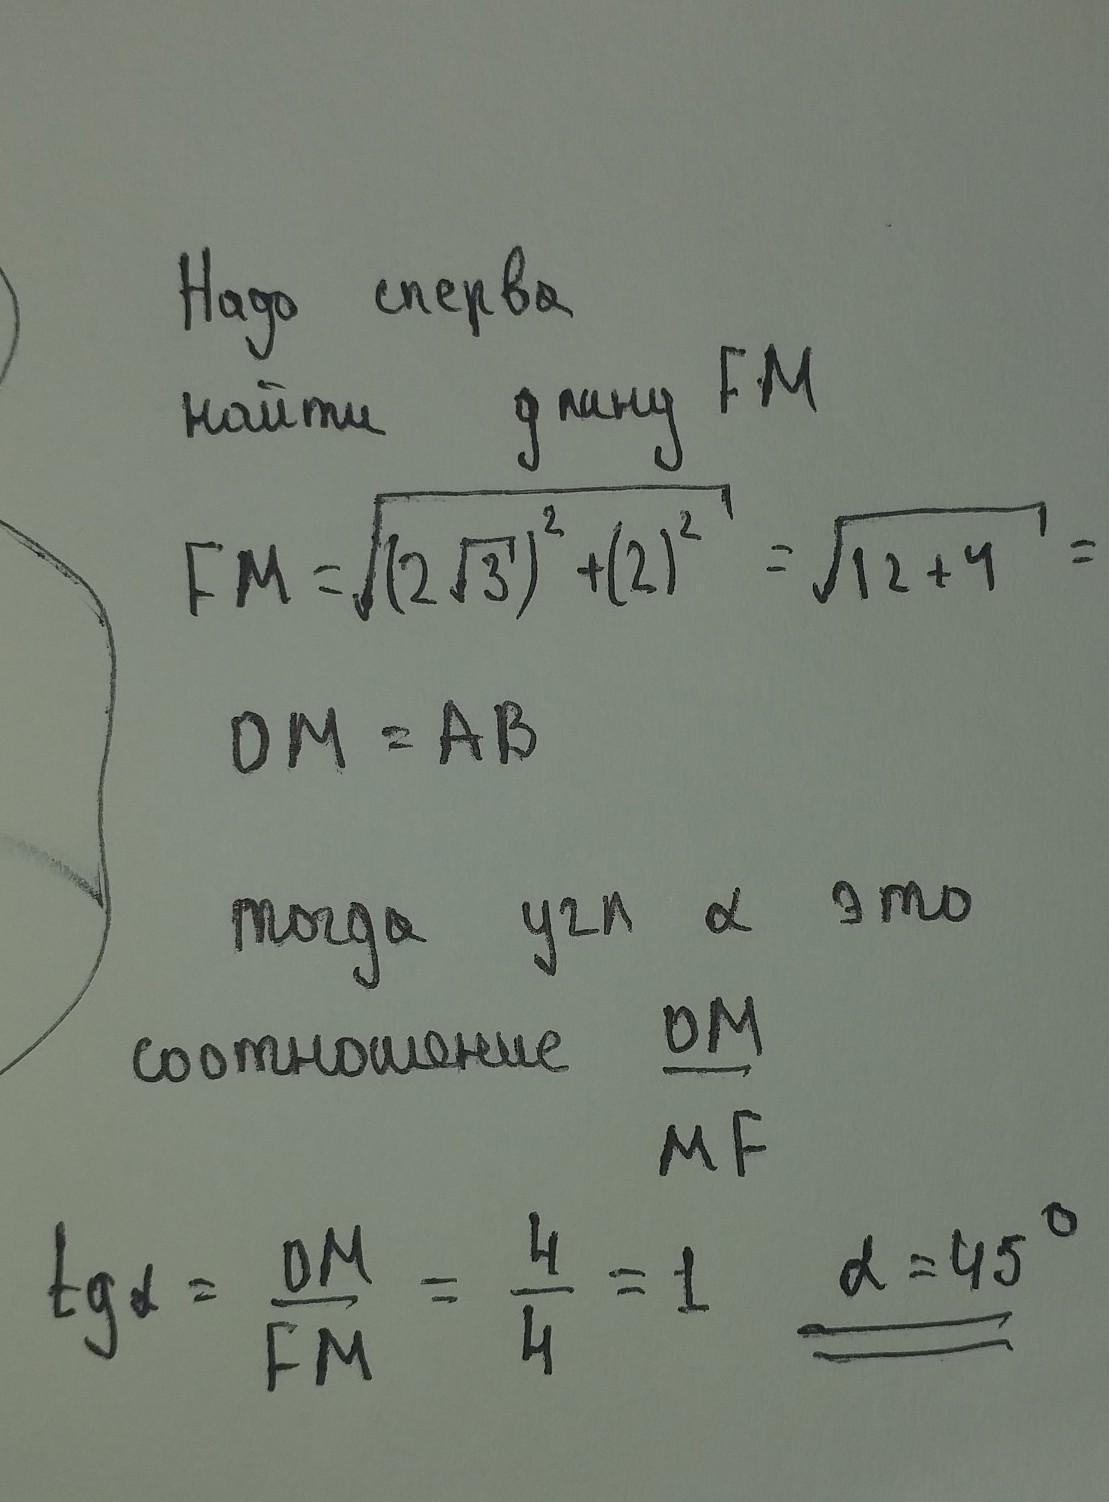 Надо сперва
найти длину FM
FM = √((2√3)² + (2)²) = √(12 + 4) =
OM = AB
тогда угл α это
соотношение OM/MF
tgα = OM/FM = 4/4 = 1 α = 45°